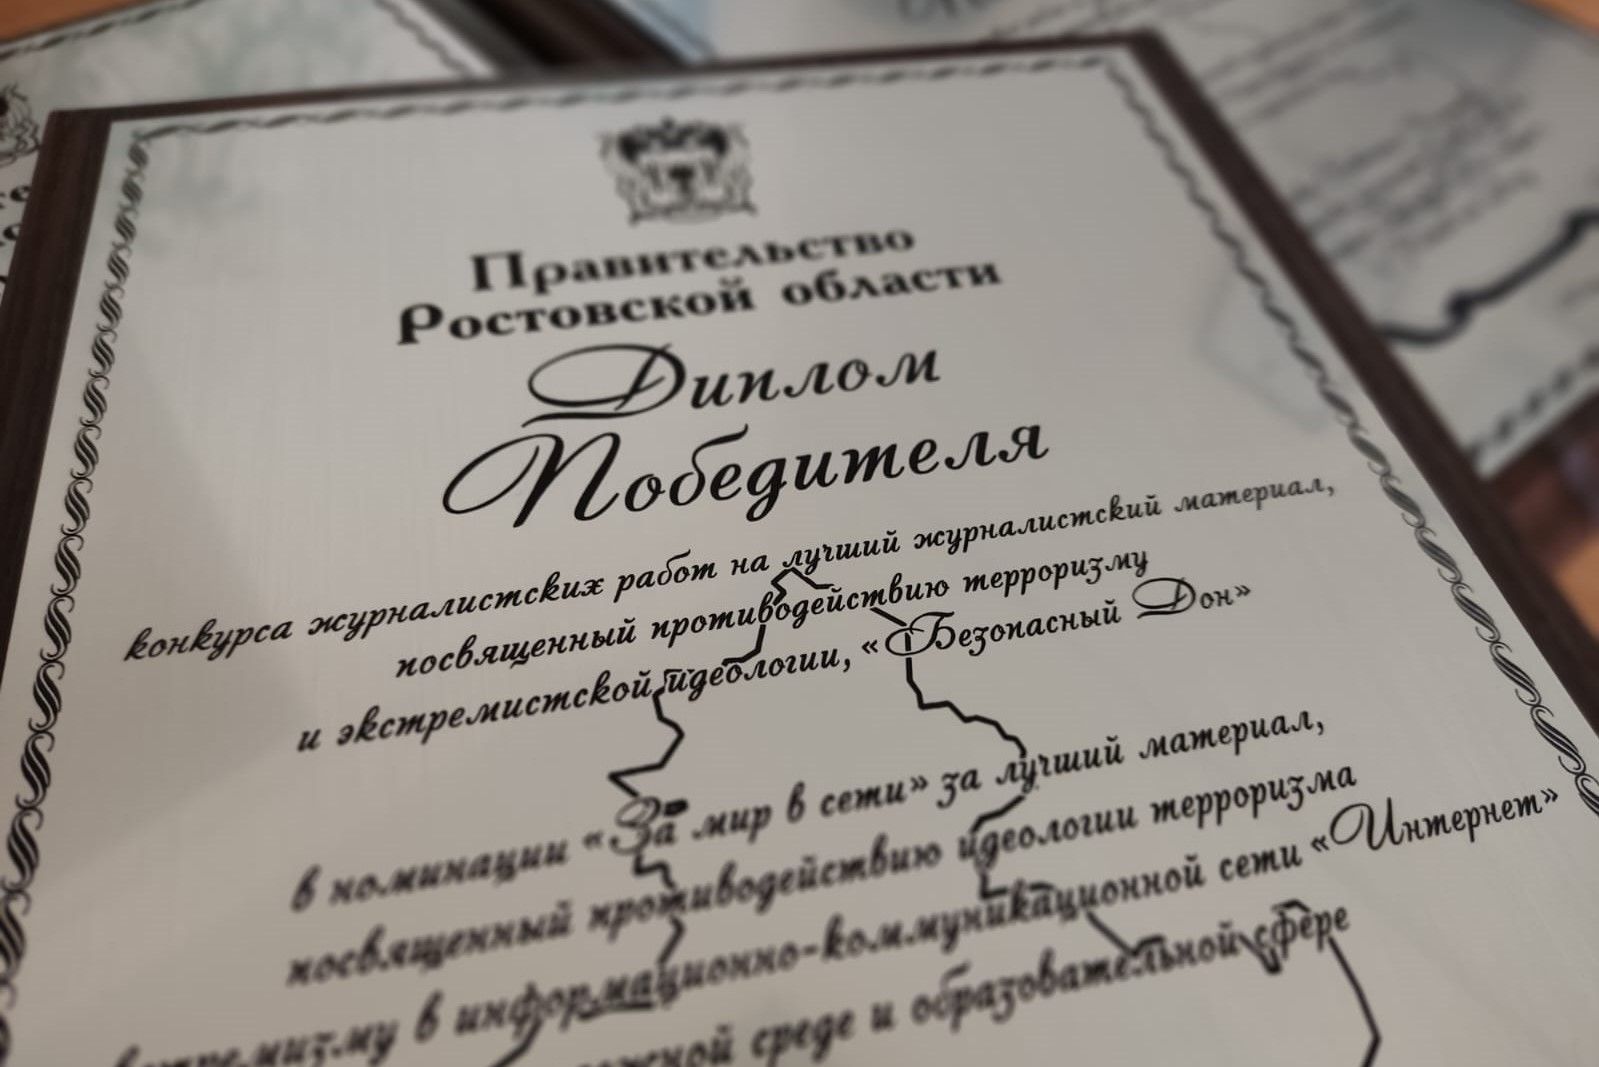 Правительство
Ростовской области
Диплом
Победителя
конкурса журналистских работ на лучший журналистский материал,
посвященный противодействию терроризму
и экстремистской идеологии, «Безопасный Дон»
в номинации «За мир в сети» за лучший материал,
посвященный противодействию идеологии терроризма
в информационно-коммуникационной сети «Интернет»
среде и образовательной сфере